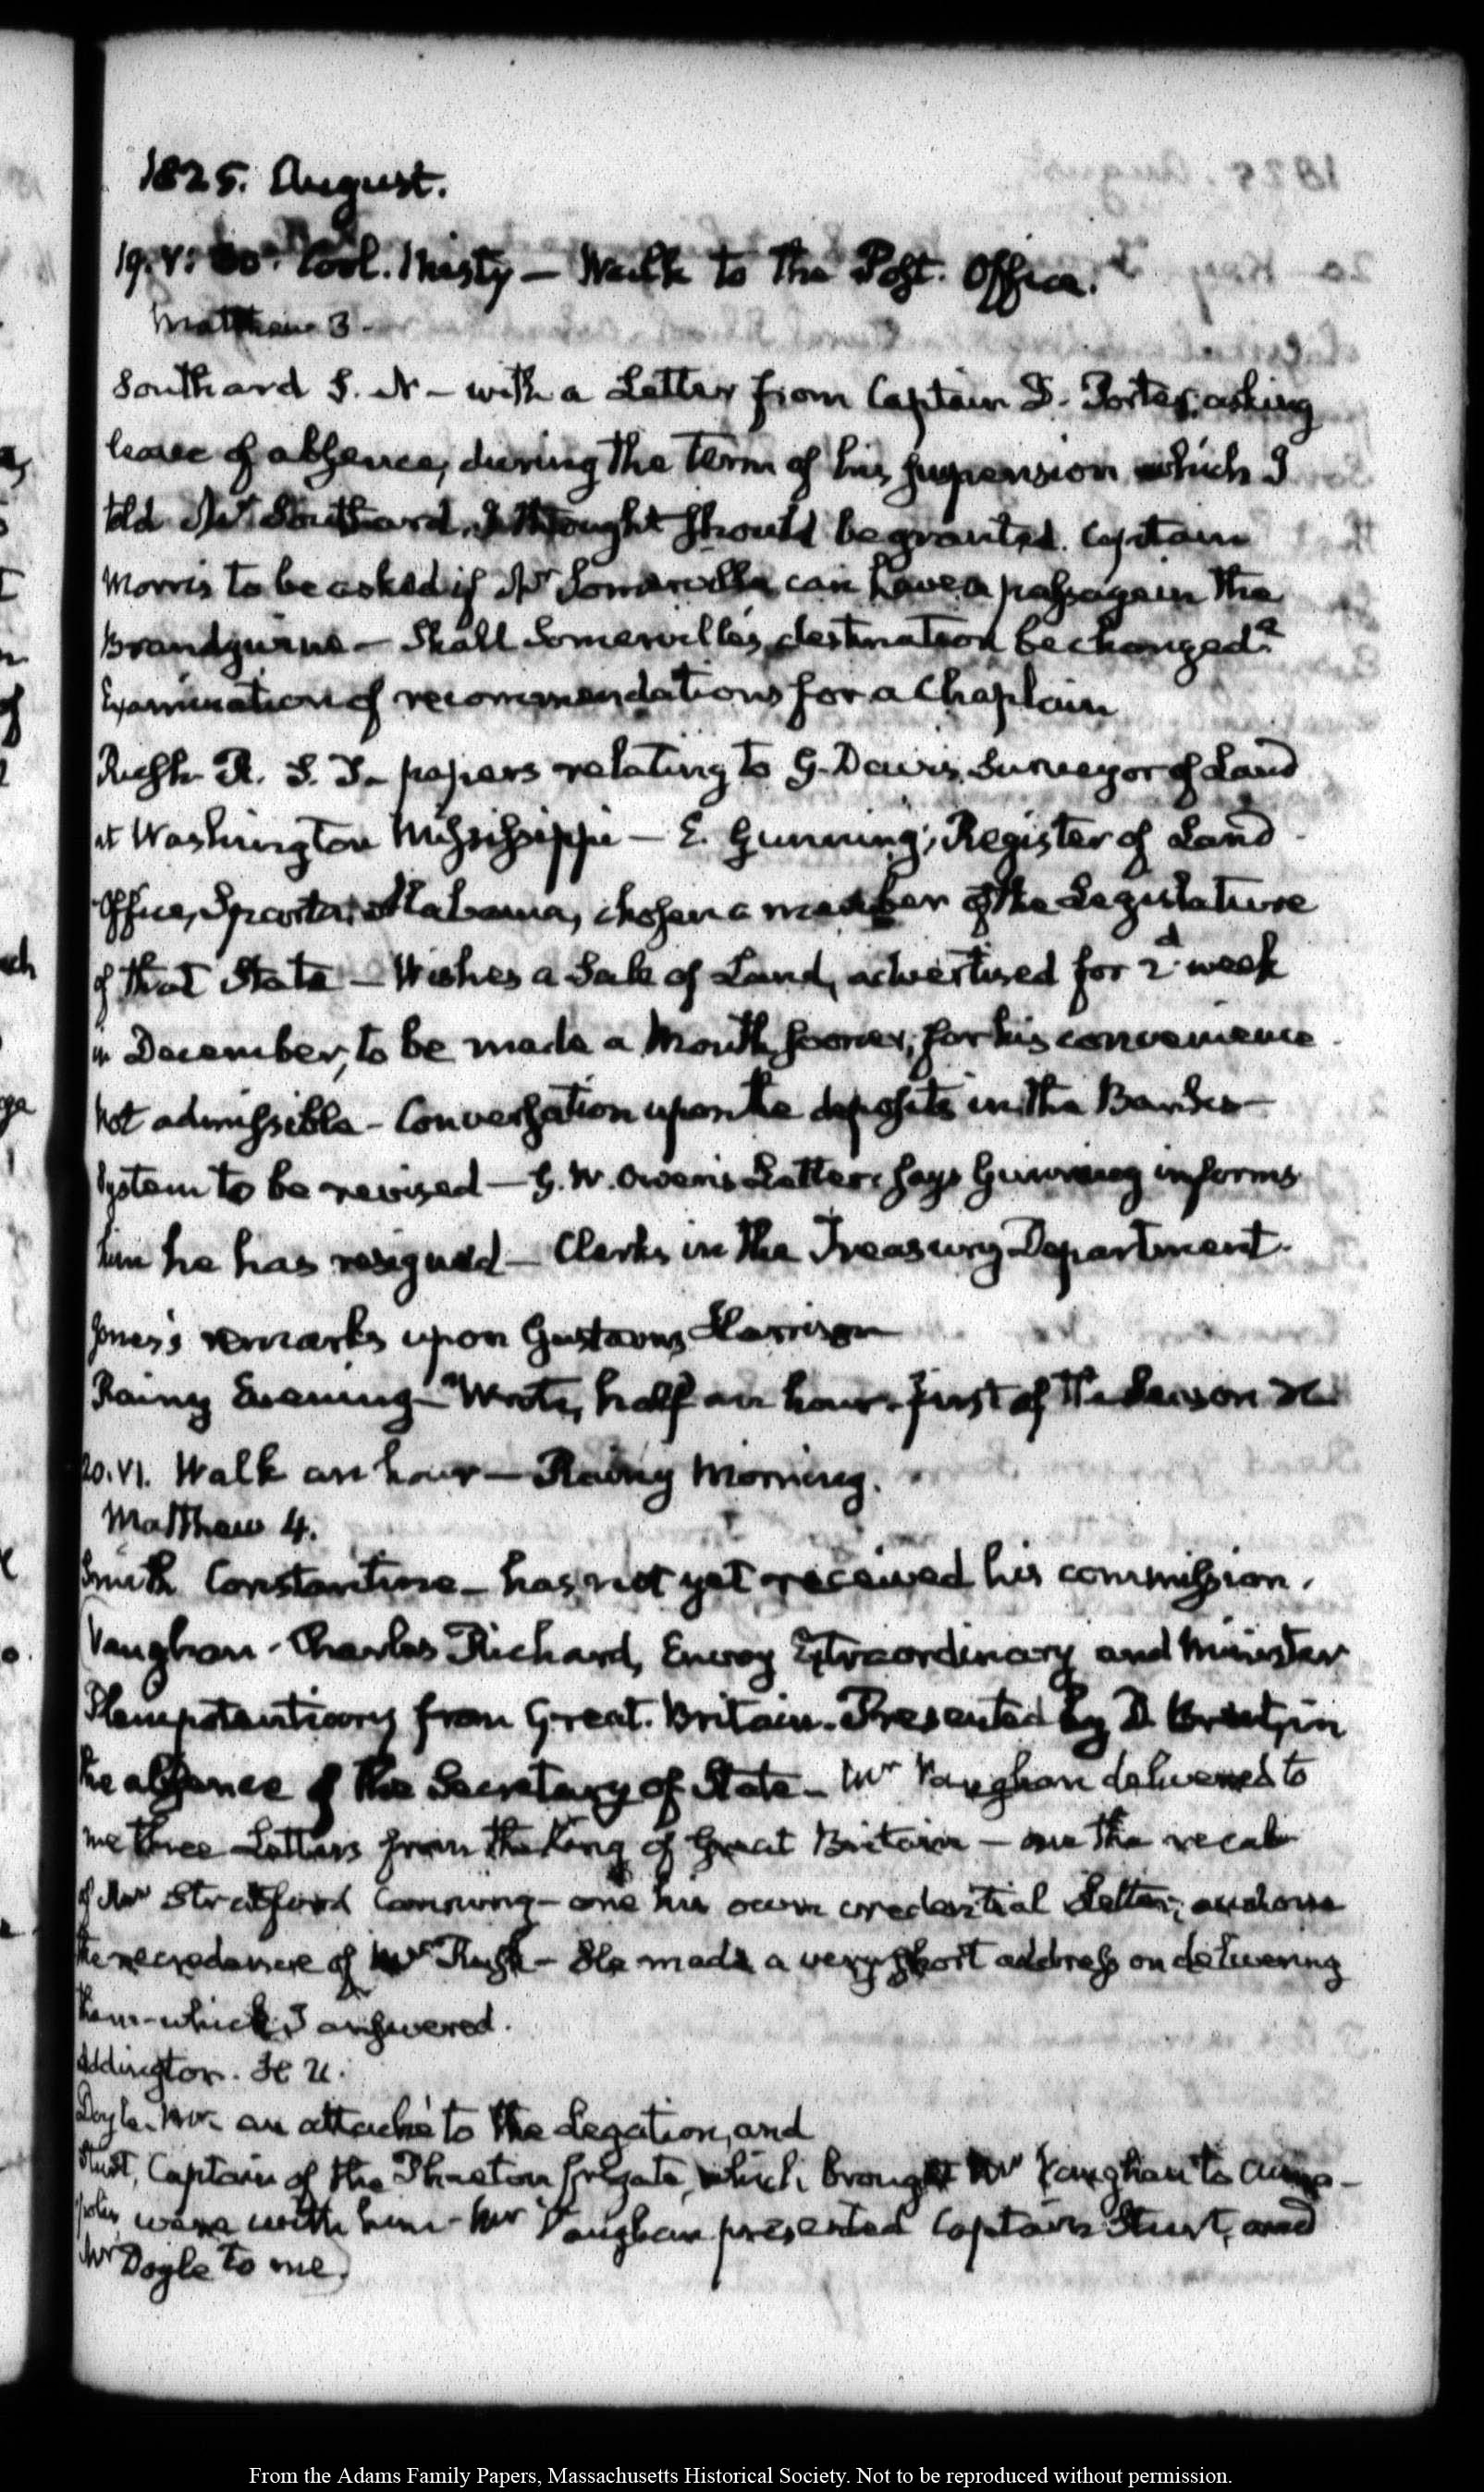 1825. August.
19. V: Cool. Misty — Walk to the Post. Office.
Matthew 3.
Southard S. N — with a Letter from Captain D. Porter, asking
leave of absence, during the term of his suspension which I
told Mr Southard, I thought should be granted. Captain
Morris to be asked if Mr Somerville can have a passage in the
Brandywine — Shall Somerville's destination be changed?
Examination of recommendations for a Chaplain
Rush R. S. T — papers relating to G. Davis, Surveyor of Land
at Washington Mississippi — E. Gunning, Register of Land
Office, Sparta, Alabama, chosen a member of the Legislature
of that State — Wishes a Sale of Land, advertised for 2d week
in December, to be made a Month sooner, for his convenience
Not admissible — Conversation upon the deposits in the Banks —
System to be revised — G. W. Owen's Letter, says Gunning informs
him he has resigned — Clerks in the Treasury Department.
Jones's remarks upon Gustavus Harrison
Rainy Evening — Wrote, half an hour. first of the Season
20. VI. Walk an hour — Rainy Morning.
Matthew 4.
Smith Constantine — has not yet received his commission.
Vaughan — Charles Richard, Envoy Extraordinary and Minister
Plenipotentiary from Great. Britain. Presented by D. Brent, in
the absence of the Secretary of State — Mr Vaughan delivered to
me three Letters from the King of Great Britain — one the recal
of Mr Stratford Canning — one his own credential Letter; and one
the recredence of Mr Rush — He made a very short address on delivering
them — which I answered.
Addington. H U.
Doyle. Mr — an attaché to the Legation, and
Sturt, Captain of the Phaeton frigate, which brought Mr Vaughan to Anna-
polis, were with him — Mr Vaughan presented Captain Sturt, and
Mr Doyle to me.
From the Adams Family Papers, Massachusetts Historical Society. Not to be reproduced without permission.